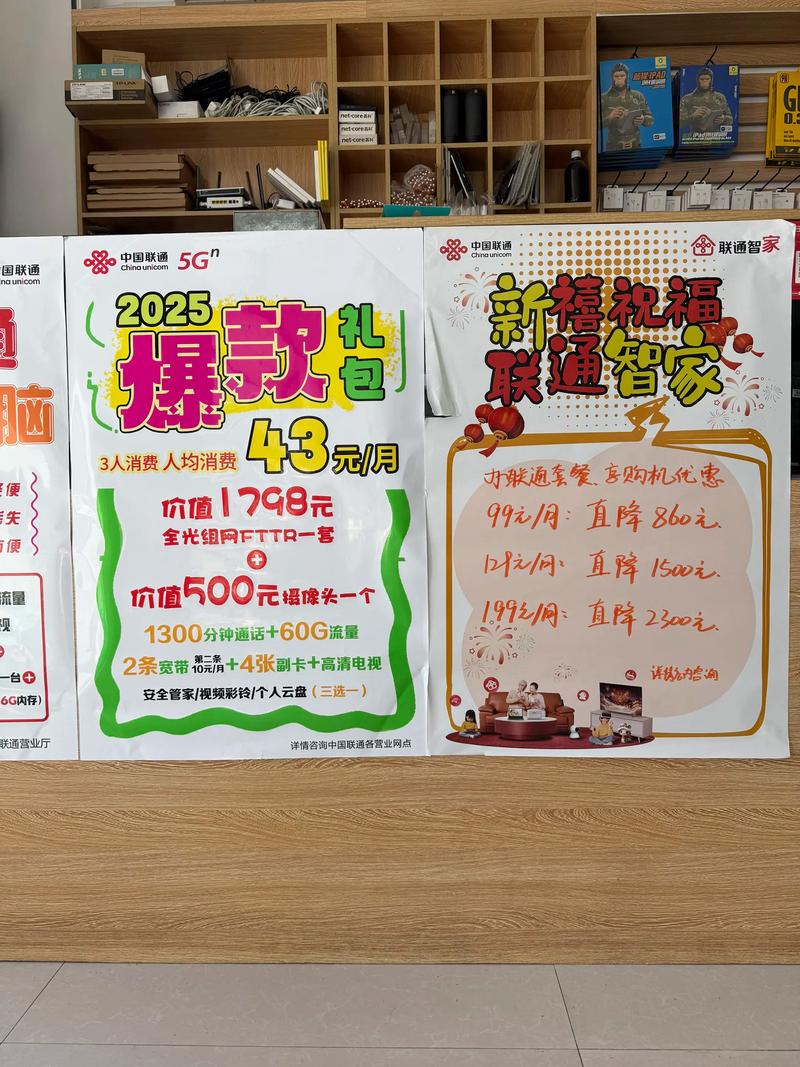 net-core磊科
net-core磊科
net-core磊科
国联通
unicom
通
脑
便
失
便
流量
视
一台+
6G内存)
联通营业厅
中国联通
China unicom
5Gⁿ
2025
爆款
礼包
3人消费 人均消费 43元/月
价值1798元
全光组网FTTR一套
+
价值500元摄像头一个
1300分钟通话+60G流量
2条宽带 第二条10元/月 +4张副卡+高清电视
安全管家/视频彩铃/个人云盘(三选一)
详情咨询中国联通各营业网点
中国联通
China unicom
联通智家
新禧祝福
联通智家
办联通套餐、享购机优惠
99元/月: 直降860元.
129元/月: 直降1500元.
199元/月: 直降2300元.
详情店内咨询